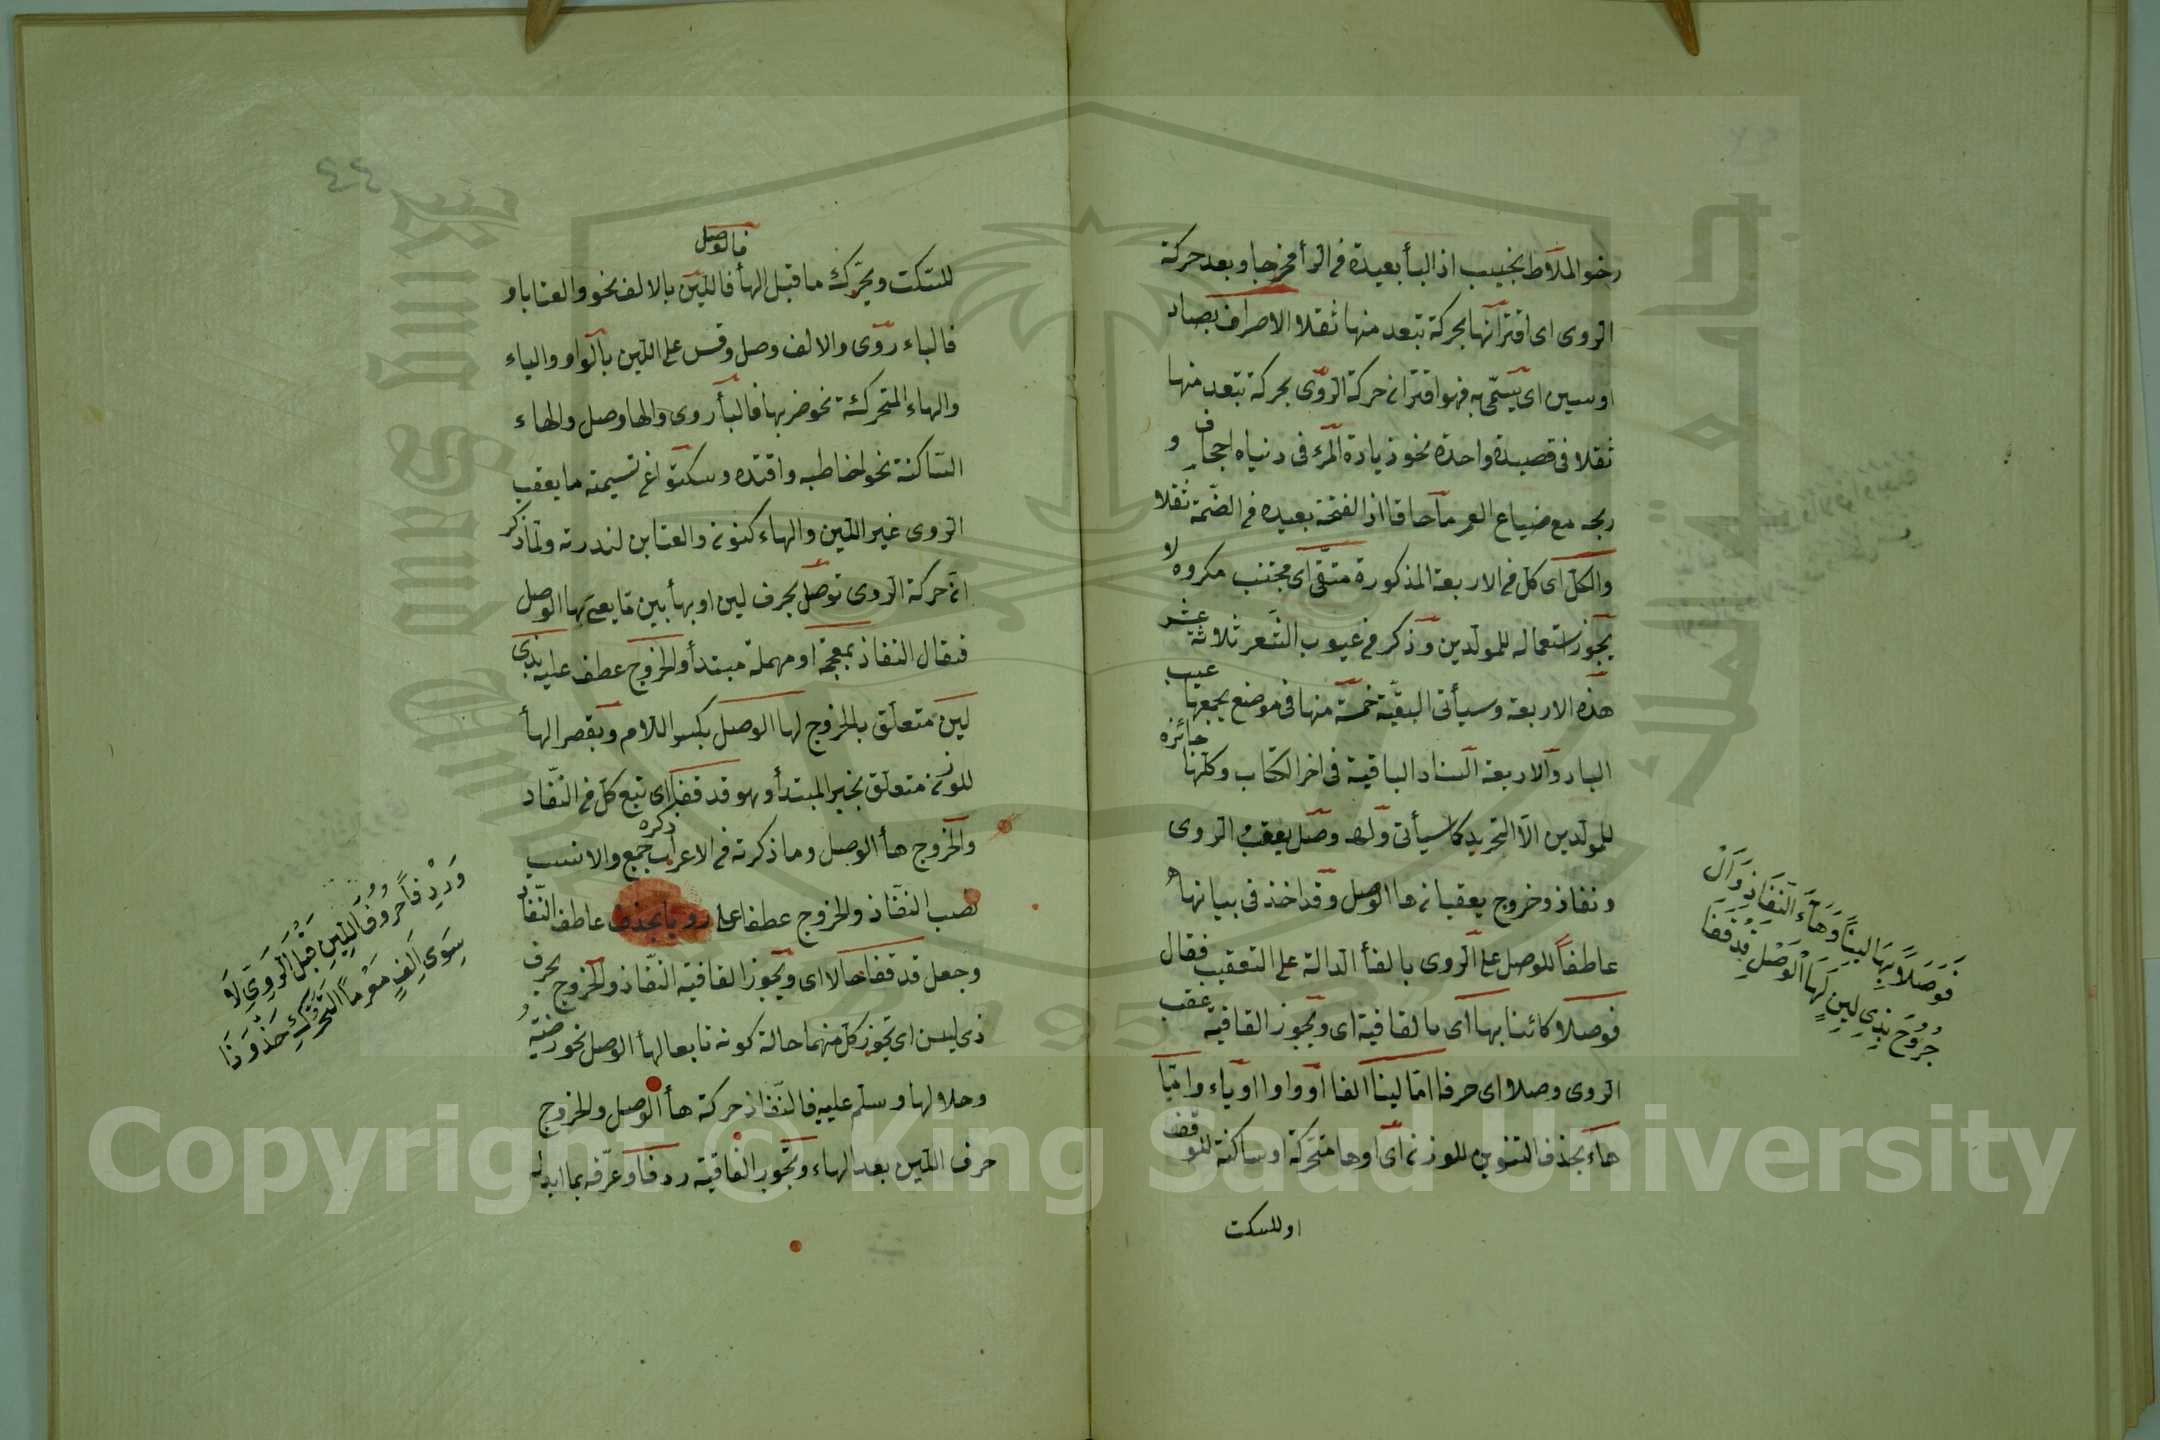 رخو الملاط نجيب اذ البأ بعيدة من الرأ مخرجا وبعد حركة
الروى اى اقترانها بحركة تبعد منها ثقلا الاصراف بصاد
او سين اى يسمى به فهو اقتران حركة الروى بحركة تبعد منها
ثقلا فى قصيدة واحدة نحو زيادة المرء فى دنياه اجحاف و
ربحه مع ضياع العمر ما حاقا اذ الفتحة بعيده من الضمة ثقلا
والكل اى كل من الاربعة المذكورة متقى اى مجتنب مكروه لا
يجوز استعماله للمولدين وذكر من عيوب الشعر ثلاثة عشر
هذه الاربعة وسيأتى البقية خمسة منها فى موضع يجمعها عيب
الباد والاربعة السناد الباقية فى اخر الكتاب وكلها جائزه
للمولدين الا التحريد كما سيأتى وله وصل يعقب الروى
ونفاذ وخروج يعقبان ها الوصل وقد اخذ فى بيانها
عاطفا للوصل على الروى بالفأ الدالة على التعقيب فقال
فوصلا كائنا بها اى بالقافية اى ويجوز القافية عقب
الروى وصلا اى حرفا اما لينا الفا او واوا او ياء واما
هاء بحذف التنوين للوزن اى او ها متحركة او ساكنة للوقف
او للسكت
فوصلا بها لينا وهاء النفاذ وال
خروج بذى لين لها الوصل قد قفا
٤٤
فالوصل
للسكت ويحرك ما قبل الهأ فاللين بالالف نحو والعتابا و
فالباء روى والالف وصل وقس على اللين بالواو والياء
والهاء المتحركة نحو ضربها فالبأ روى والها وصل والهاء
الساكنة نحو اخاطبه واقتده وسكتوا عن تسمية ما يعقب
الروى غير اللين والهاء كنون والعتابن لندرته ولما ذكر
ان حركة الروى توصل بحرف لين او بهأ بين ما يعى بها الوصل
فقال النفاذ بمعجمة او مهملة مبتدأ والخروج عطف عليه بذى
لين متعلق بالخروج لها الوصل بكسر اللام وبقصر الهأ
للوزن متعلق بخبر المبتدأ وهو قد قفا اى تبع كل من النفاد
والخروج هأ الوصل وما ذكرته من الاعراب ذكره جمع والانسب
نصب النفاذ والخروج عطفا على رويا بحذف عاطف النفاذ
وجعل قد قفا حالا اى ويجوز القافية النفاذ والخروج بحرف
ذى لين اى تحوز كل منهما حالة كونه تابعا لهأ الوصل نحو
وحلالها وسلم عليه فالنفاذ حركة هأ الوصل والخروج
حرف اللين بعد الهاء وتحوز القافية ردفا وعرفه بما ابدله
وردفا حروف اللين قبل الروى لا
سوى الف معرما التحرك حذوذا
Copyright © King Saud University
1957